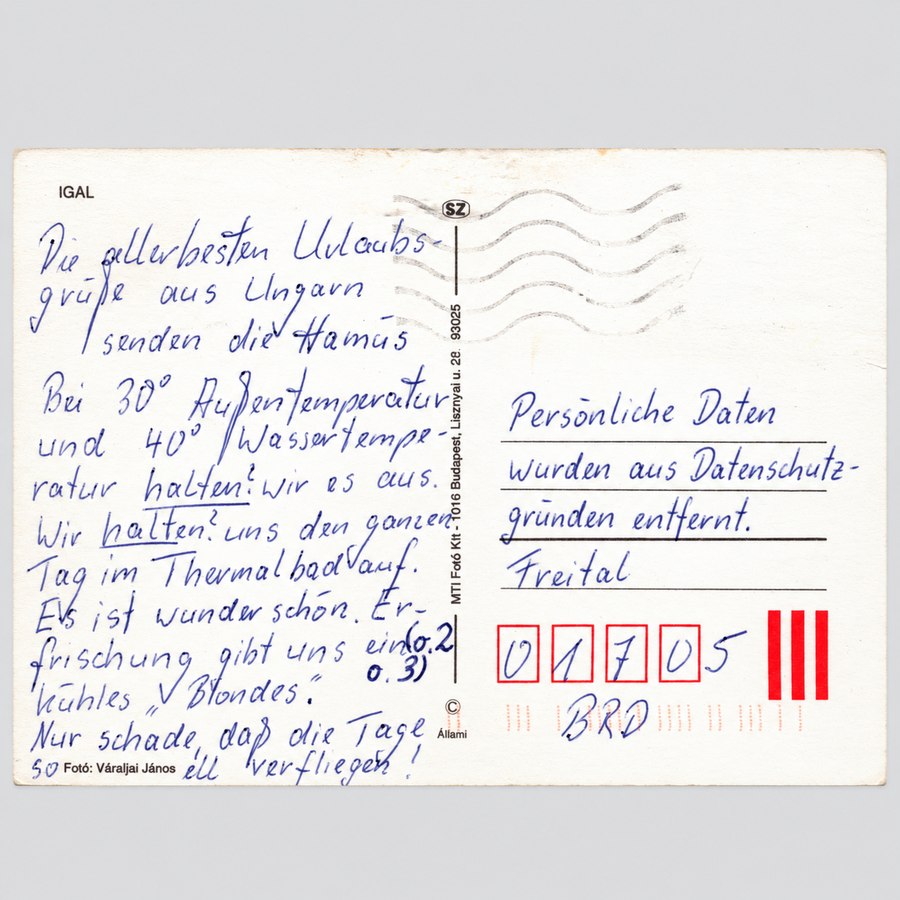 IGAL
Die allerbesten Urlaubs-
grüße aus Ungarn
senden die Hamüs
Bei 30° Außentemperatur
und 40° Wassertempe-
ratur halten? wir es aus.
Wir halten? uns den ganzen
Tag im Thermalbad auf.
Es ist wunderschön. Er-
frischung gibt uns ein (o. 2
o. 3)
kühles „Blondes“.
Nur schade, daß die Tage
so ell verfliegen!
Fotó: Váraljai János
SZ
MTI Fotó Kft - 1016 Budapest, Lisznyai u. 28. 93025
©
Állami
Persönliche Daten
wurden aus Datenschutz-
gründen entfernt.
Freital
01705
BRD